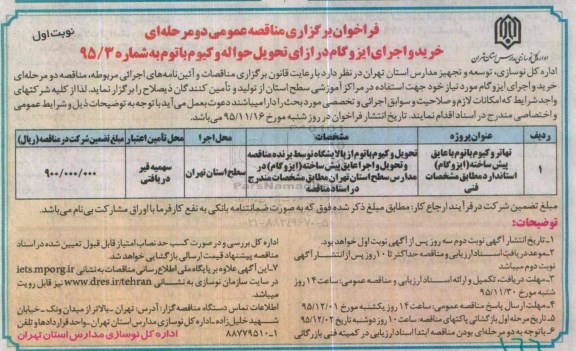 نوبت اول
فراخوان برگزاری مناقصه عمومی دو مرحله‌ای
خرید و اجرای ایزوگام در ازای تحویل حواله وکیوم باتوم به شماره ۹۵/۳
اداره کل نوسازی مدارس استان تهران
اداره کل نوسازی، توسعه و تجهیز مدارس استان تهران در نظر دارد با رعایت قانون برگزاری مناقصات و آئین‌نامه‌های اجرائی مربوطه، مناقصه دو مرحله‌ای
خرید و اجرای ایزوگام مورد نیاز خود جهت استفاده در مراکز آموزشی سطح استان از تولید و تأمین کنندگان ذیصلاح را برگزار نماید. لذا از کلیه شرکتهای
واجد شرایط که امکانات لازم و صلاحیت و سوابق اجرائی و تخصصی مورد بحث را دارا میباشند دعوت بعمل می‌آید با توجه به توضیحات ذیل و شرایط عمومی
و اختصاصی مندرج در اسناد اقدام نمایند. تاریخ انتشار فراخوان در روز شنبه مورخ ۹۵/۱۱/۱۶ می‌باشد.
ردیف عنوان پروژه مشخصات محل اجرا محل تأمین اعتبار مبلغ تضمین شرکت در مناقصه (ریال)
۱ تهاتر وکیوم باتوم با عایق پیش ساخته (ایزوگام) استاندارد مطابق مشخصات فنی
تحویل وکیوم باتوم از پالایشگاه توسط برنده مناقصه و تحویل و اجرا عایق پیش ساخته (ایزوگام) در مدارس سطح استان تهران مطابق مشخصات مندرج در اسناد مناقصه
سطح استان تهران سهمیه قیر دریافتی ۹۰۰/۰۰۰/۰۰۰
مبلغ تضمین شرکت در فرآیند ارجاع کار: مطابق مبلغ ذکر شده فوق که به صورت ضمانتنامه بانکی به نفع کارفرما یا اوراق مشارکت بی‌نام می‌باشد.
توضیحات:
۱- تاریخ انتشار آگهی نوبت دوم سه روز پس از آگهی نوبت اول خواهد بود.
۲- موعد دریافت اسناد ارزیابی و مناقصه حداکثر تا ۱۰ روز پس از انتشار آگهی
نوبت دوم میباشد
۳- مهلت دریافت، تکمیل و ارائه اسناد ارزیابی و مناقصه عمومی: ساعت ۱۴ روز
شنبه مورخ ۹۵/۱۱/۳۰
۴- مهلت ارسال پاسخ مناقصه عمومی: ساعت ۱۴ روز یکشنبه مورخ ۹۵/۱۲/۰۱
۵- تاریخ مرحله اول بازگشائی پاکتهای مناقصه: ساعت ۱۰ روز دوشنبه تاریخ ۹۵/۱۲/۰۲
۶- با توجه به دو مرحله‌ای بودن مناقصه ابتدا اسناد ارزیابی در کمیته فنی بازرگانی
اداره کل بررسی و در صورت کسب حد نصاب امتیاز قابل قبول تعیین شده در اسناد
مناقصه پیشنهاد قیمت ارسالی بازگشایی خواهد شد.
۷- این آگهی علاوه بر پایگاه ملی اطلاع رسانی مناقصات به نشانی iets.mporg.ir
در سایت سازمان نوسازی به نشانی www.dres.ir/tehran نیز قابل رویت
میباشد
اطلاعات تماس دستگاه مناقصه گزار: آدرس: تهران - بالاتر از میدان ونک - خیابان
شهید خلیل زاده - اداره کل نوسازی مدارس استان تهران - واحد قراردادها و تلفن
۸۸۷۷۹۵۱۰-۱
اداره کل نوسازی مدارس استان تهران